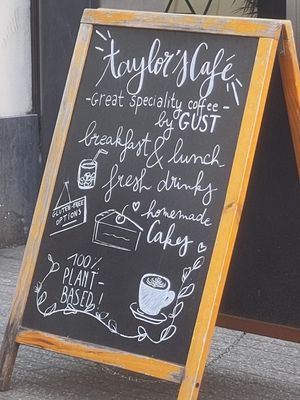 Taylor's Café
- Great speciality coffee -
by GUST
breakfast & lunch
fresh drinks
GLUTEN-FREE
OPTIONS
homemade
Cakes
100%
PLANT-
BASED!